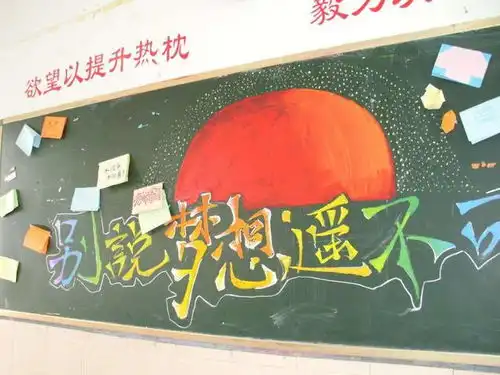 欲望以提升热枕
毅力以
别說梦想遥不可